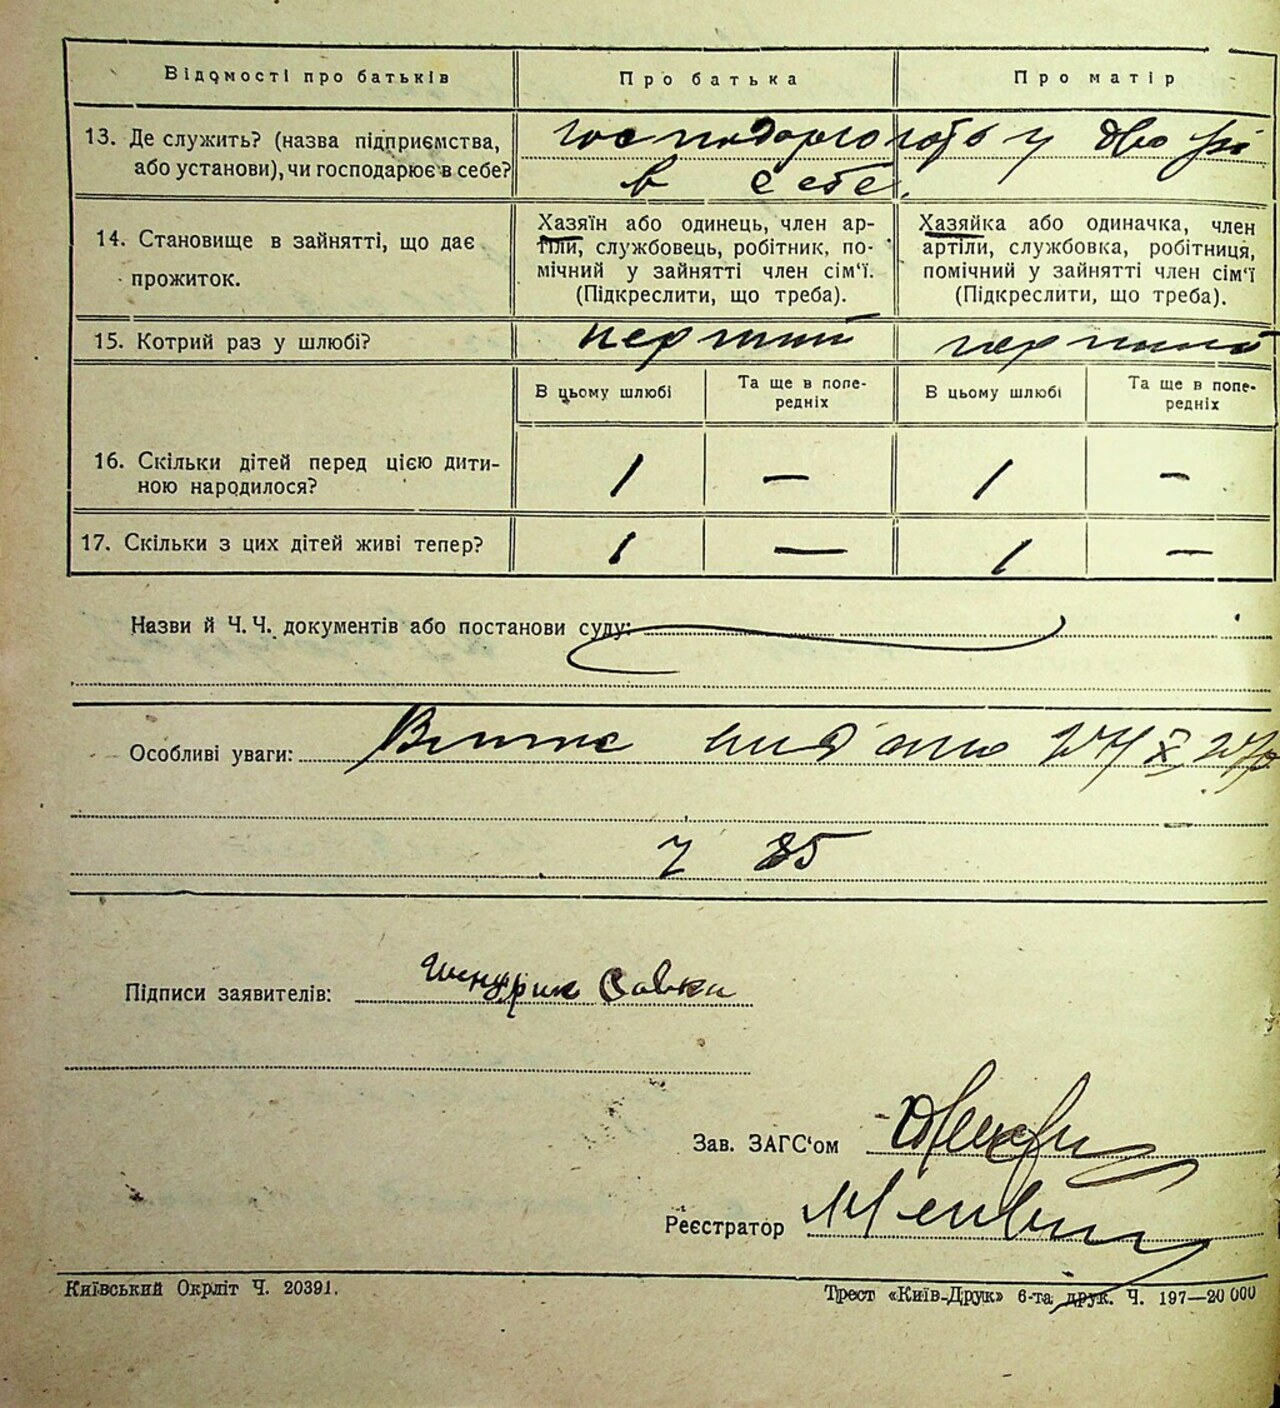 Відомості про батьків
Про батька
Про матір
13. Де служить? (назва підприємства,
або установи), чи господарює в себе?
господарюють у
в себе.
14. Становище в зайнятті, що дає
прожиток.
Хазяїн або одинець, член ар-
тіли, службовець, робітник, по-
мічний у зайнятті член сім'ї.
(Підкреслити, що треба).
Хазяйка або одиначка, член
артіли, службовка, робітниця,
помічний у зайнятті член сім'ї
(Підкреслити, що треба).
15. Котрий раз у шлюбі?
перший
перший
В цьому шлюбі
Та ще в попе-
редніх
В цьому шлюбі
Та ще в попе-
редніх
16. Скільки дітей перед цією дити-
ною народилося?
1 — 1 —
17. Скільки з цих дітей живі тепер?
1 — 1 —
Назви й Ч.Ч. документів або постанови суду:
Особливі уваги:
85
Підписи заявителів: Шнурик Савка
Зав. ЗАГС'ом
Реєстратор
Київський Окрліт Ч. 20391.
Трест «Київ-Друк» 6-та друк. Ч. 197—20 000